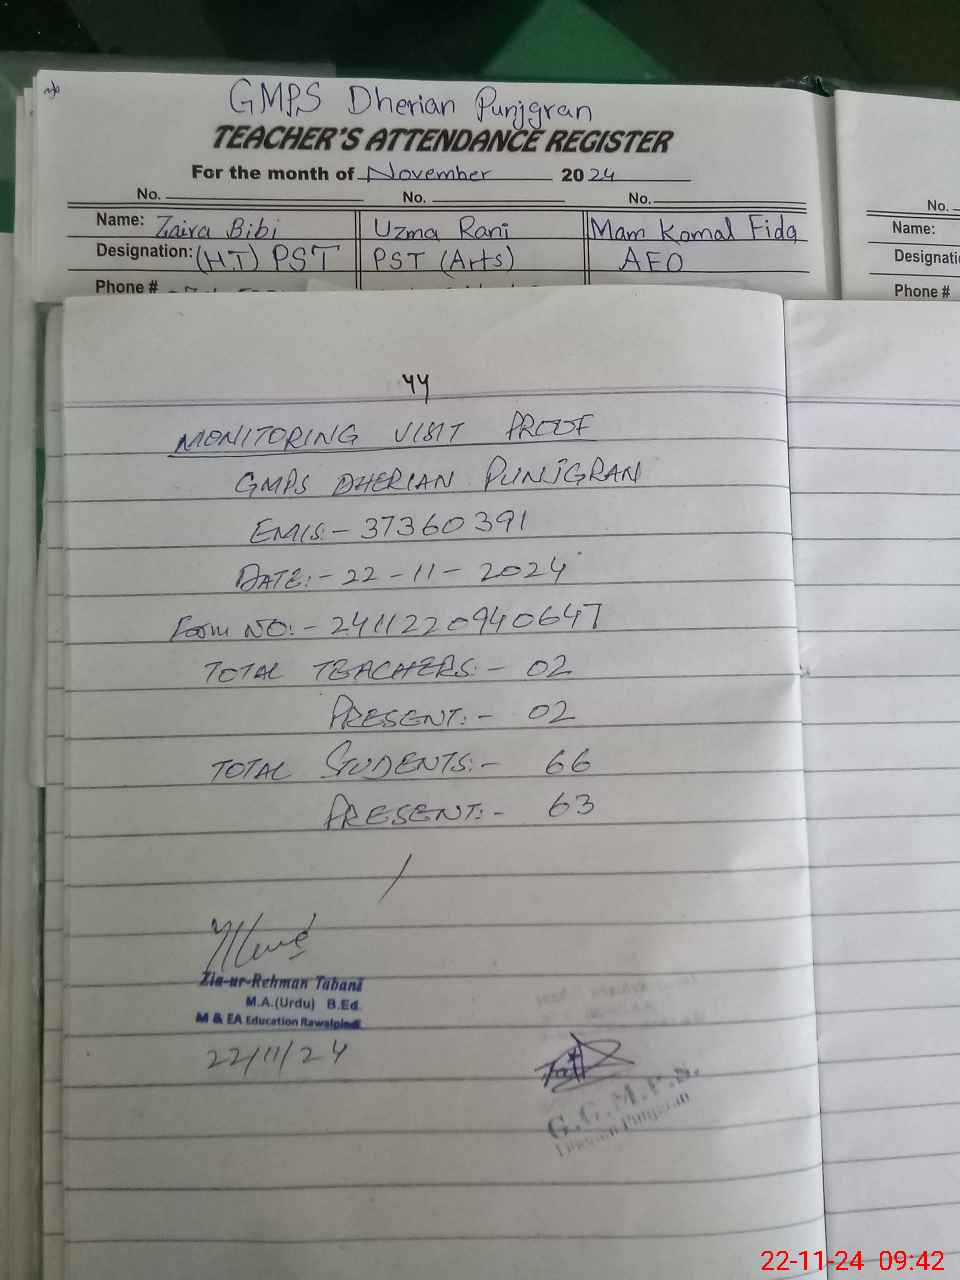 GMPS Dherian Punjgran
TEACHER'S ATTENDANCE REGISTER
For the month of November 2024
No. No. No.
Name: Zaira Bibi Uzma Rani Mam Komal Fida
Designation: (H.T) PST PST (Arts) AEO
Phone #
No.
Name:
Designati
Phone #
44
MONITORING VISIT PROOF
GMPS DHERIAN PUNJGRAN
EMIS:- 37360391
DATE:- 22-11-2024
Form NO:- 2411220940647
TOTAL TEACHERS:- 02
PRESENT:- 02
TOTAL STUDENTS:- 66
PRESENT:- 63
Zia-ur-Rehman Tabani
M.A.(Urdu) B.Ed.
M & EA Education Rawalpindi
22/11/24
G.G.M.P.S.
Dherian Punjgran
22-11-24 09:42